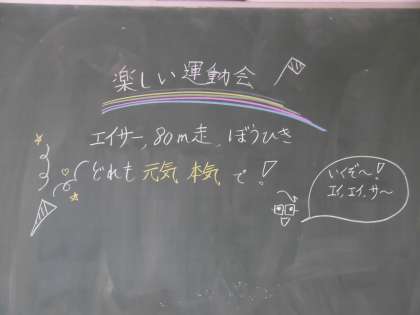 楽しい運動会
エイサー、80m走、ぼうひき
どれも元気 本気で!
いくぞ〜!
エイ、エイ、サ〜